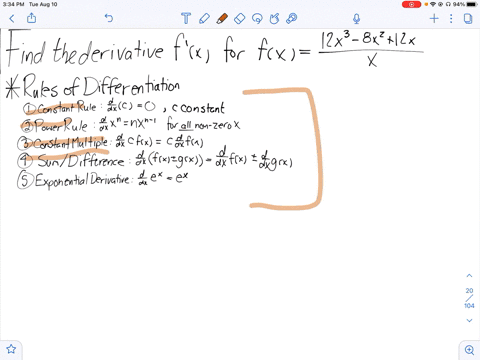 3:34 PM Tue Aug 10
Find the derivative f'(x) for f(x) = \frac{12x³ - 8x² + 12x}{x}
* Rules of Differentiation
① Constant Rule: d/dx (c) = 0, c constant
② Power Rule: d/dx xⁿ = nxⁿ⁻¹ for all non-zero x
③ Constant Multiple: d/dx cf(x) = c d/dx f(x)
④ Sun/Difference: d/dx (f(x) ± g(x)) = d/dx f(x) ± d/dx g(x)
⑤ Exponential Derivative: d/dx eˣ = eˣ
20
/
104